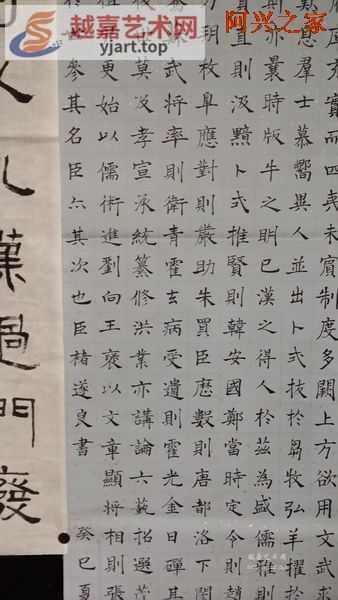 越嘉艺术网
yjart.top
阿兴之家
充實而四夷未賓制度多闕上方欲用文武求
息羣士慕嚮異人並出卜式拔於芻牧弘羊擢於
亦曩時版牛之明已漢之得人於茲為盛儒雅則
直則汲黯卜式推賢則韓安國鄭當時定令則趙
朔枚臯應對則嚴助朱買臣歷數則唐都洛下閎
武將率則衛青霍去病受遺則霍光金日磾其
莫及孝宣承統纂修洪業亦講論六蓺招選茂
更始以儒術進劉向王褒以文章顯將相則張
於世參其名臣亦其次也臣褚遂良書
癸巳夏
漢過門廢
越嘉艺术网